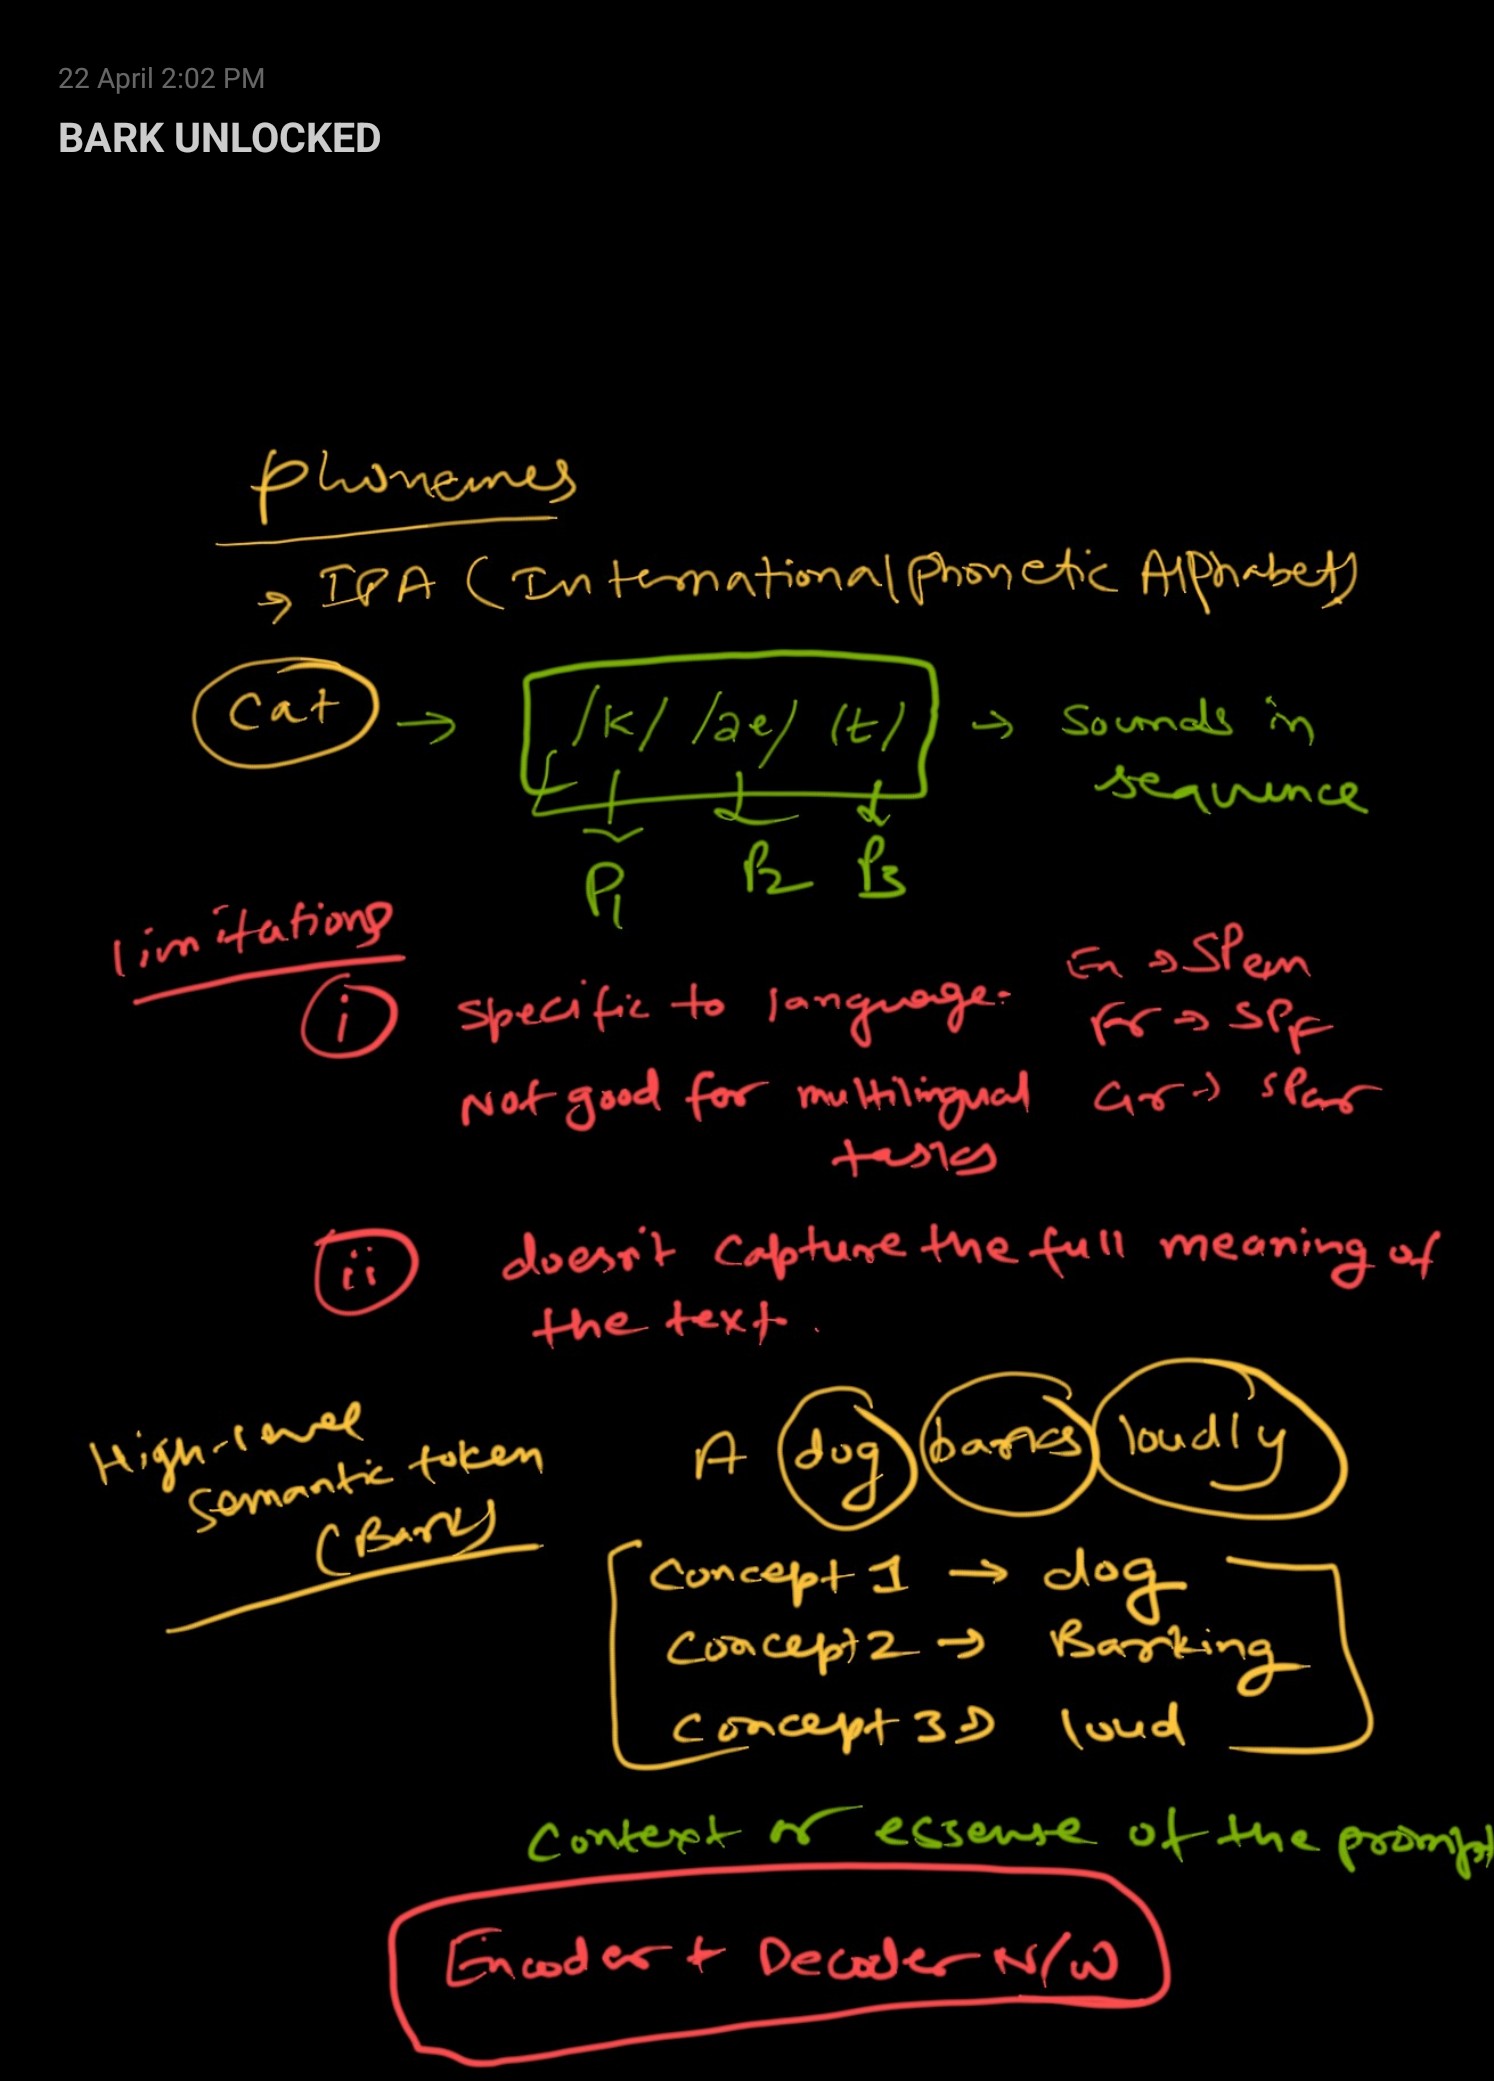 22 April 2:02 PM
BARK UNLOCKED
Phonemes
→ IPA (International Phonetic Alphabet)
Cat → /k/ /ae/ (t/ → Sounds in
sequence
P1 P2 P3
limitations
i specific to language. En → SPen
Fr → SPF
Not good for multilingual Gr → SPGr
tasks
ii doesn't capture the full meaning of
the text.
High-level
semantic token
(Bark)
A dog barks loudly
Concept 1 → dog
Concept 2 → Barking
Concept 3 → loud
Context or essense of the prompt
Encoder + Decoder N/W